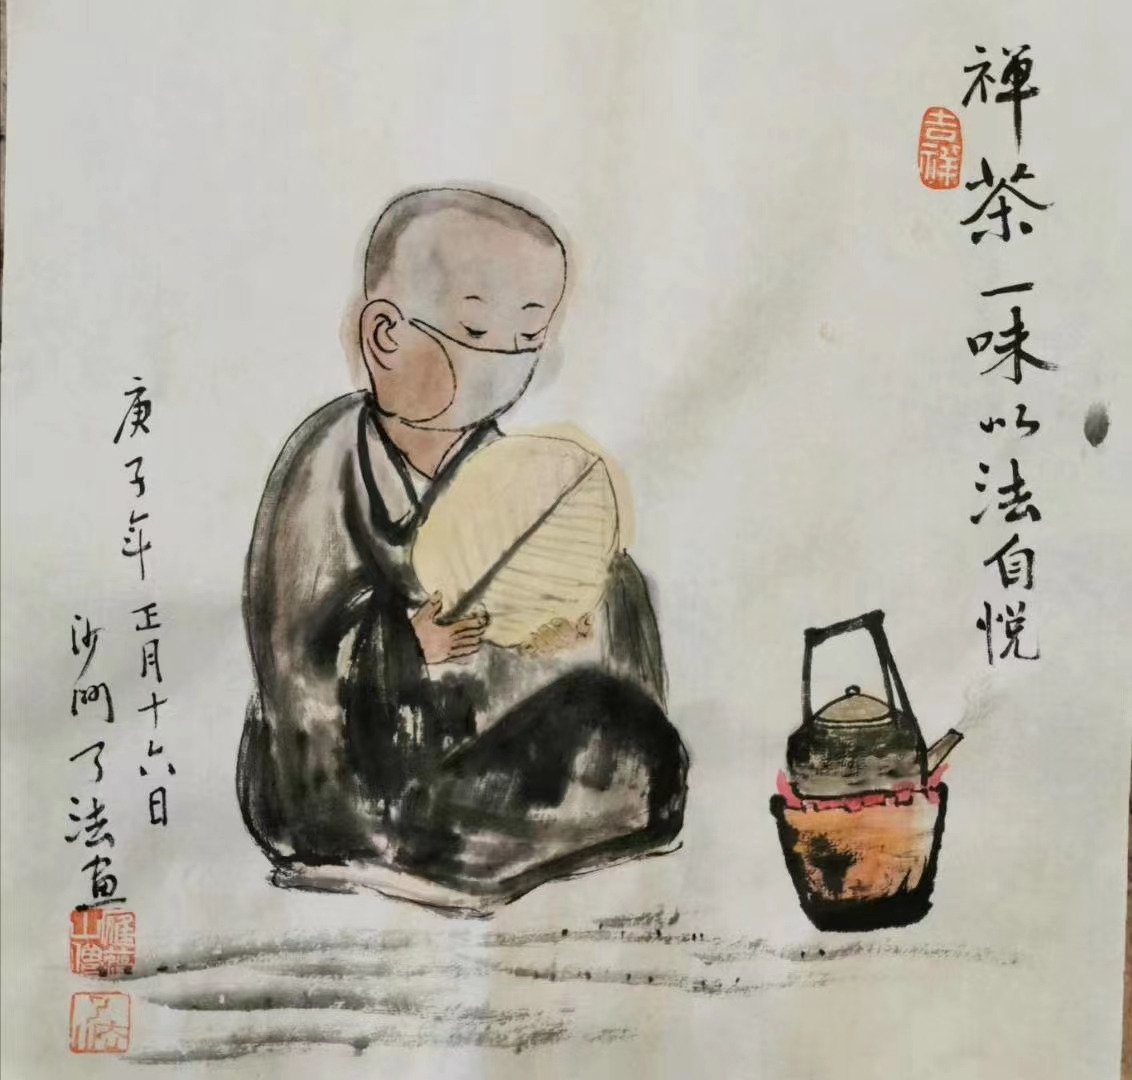 禅茶一味以法自悦
吉祥
庚子年正月十六日
沙門了法画
了法